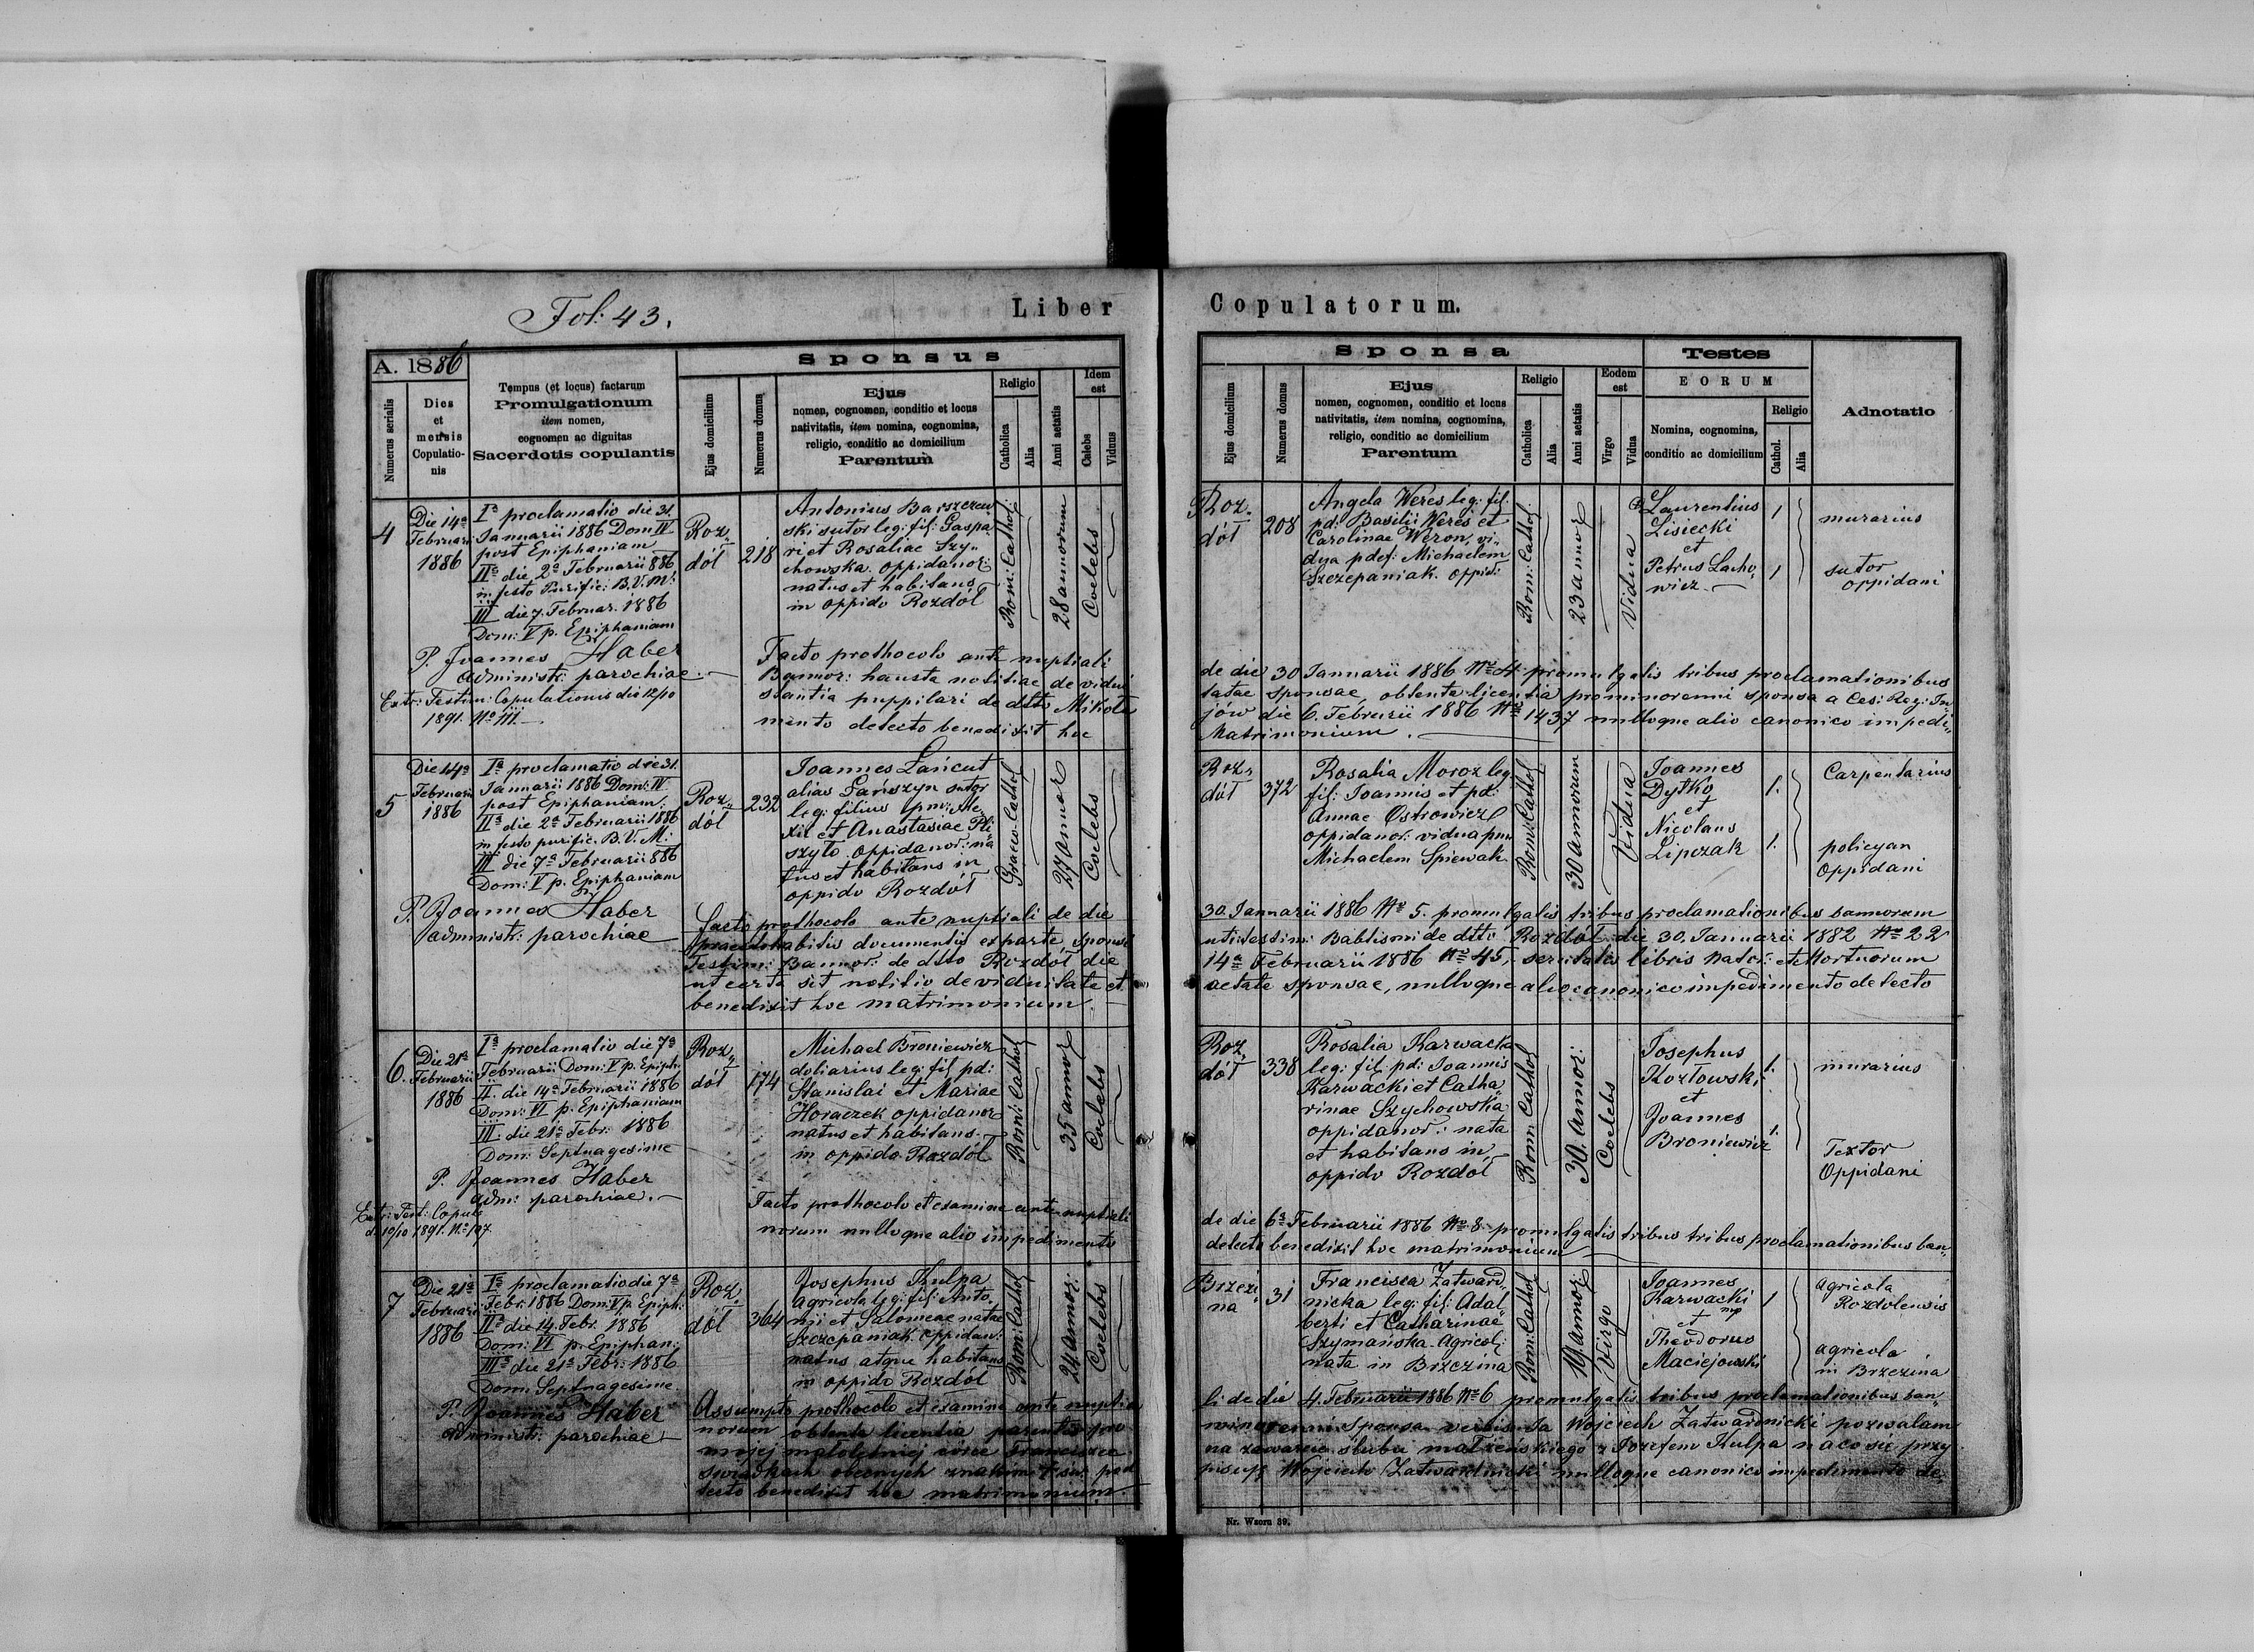 Fol: 43.
Liber Copulatorum.
A. 1886
Numerus serialis
Dies
et
mensis
Copulatio-
nis
Tempus (et locus) factarum
Promulgationum
item nomen,
cognomen ac dignitas
Sacerdotis copulantis
Sponsus
Ejus domicilium
Numerus domus
Ejus
nomen, cognomen, conditio et locus
nativitatis, item nomina, cognomina,
religio, conditio ac domicilium
Parentum
Religio
Catholica
Alia
Anni aetatis
Idem
est
Calebs
Viduus
Sponsa
Ejus domicilium
Numerus domus
Ejus
nomen, cognomen, conditio et locus
nativitatis, item nomina, cognomina,
religio, conditio ac domicilium
Parentum
Religio
Catholica
Alia
Anni aetatis
Eodem
est
Virgo
Vidua
Testes
EORUM
Nomina, cognomina,
conditio ac domicilium
Religio
Cathol.
Alia
Adnotatio
4
Die 14a
Februarii
1886
Ia proclamatio die 31
Januarii 1886 Dom IV
post Epiphaniam
IIa die 2a Februarii 886
in festo Purific: B.V.M.
III die 7. Februar. 1886
Dom: V p. Epiphaniam
P. Joannes Haber
administr: parochiae
Extr: Testim: Copulationis die 12/10
1891. No
Roz„
dół
218
Antonius Barszczew
ski sutor leg: fil: Gaspa„
ri et Rosaliae Szy„
chowska oppidanor:
natus et habitans
in oppido Rozdół
Rom: Cathol:
28 annorum
Coelebs
Roz„
dół
208
Angela Weres leg: fil:
pd: Basilii Weres et
Carolinae Weron, vi„
dua pdef: Michaelem
Szczepaniak. Oppid:
Rom: Cathol:
23 annor
Vidua
Laurentius
Lisiecki
et
Petrus Lacho„
wicz
1
1
murarius
sutor
oppidani
Facto prothocolo ante nuptiali de die 30 Januarii 1886 No 4 promulgatis tribus proclamationibus
Bannor: hausta notitiae de vidui tatae sponsae, obtenta licentia prominorenni sponsa a Ces: Reg: In„
stantia puppilari de dtto Mikoła jów die 6. Februrii 1886 No 1437 nulloque alio canonico impedi„
mento detecto benedixit hoc Matrimonium.
5
Die 14a
Februarii
1886
Ia proclamatio die 31
Januarii 1886 Dom: IV
post Epiphaniam:
IIa die 2a Februarii 1886
in festo purific. B.V.M:
III die 7a Februarii 886
Dom: V p. Epiphaniam
P. Joannes Haber
administr: parochiae
Roz„
dół
232
Joannes Łańcut
alias Łańszyn sutor
leg: filius pm: Ale
xii et Anastasiae Pli„
szyło oppidanor: na
tus et habitans in
oppido Rozdół
Graeco: Cathol
27 annor
Coelebs
Roz„
dół
372
Rosalia Moroz leg
fil: Joannis et pd:
Annae Ostrowicz
oppidanor: vidua pm
Michaelem Spiewak
Rom: Cathol
30 annorum
Vidua
Joannes
Dytko
et
Nicolaus
Lipczak
1.
1.
Carpentarius
policyan
Oppidani
facto prothocolo ante nuptiali de die 30. Januarii 1886 No 5. promulgatis tribus proclamationibus bannorum
praevis habitis documentis ex parte sponsi uti: testim: Babtismi de dtto: Rozdół die 30. Januarii 1882 No 22
Testim: Bannor: de dtto Rozdół die 14a Februarii 1886 No 45, scrutatis libris Nator: et Mortuorum
ut certa sit notitio de viduitate et aetate sponsae, nulloque alio canonico impedimento detecto
benedixit hoc matrimonium.
6.
Die 21a
Februarii
1886
Ia proclamatio die 7a
Februarii Dom: V p. Epiph:
II. die 14a Februarii 1886
Dom: VI p. Epiphaniam
III. die 21a Febr: 1886
Dom: Septuagesime
P. Joannes Haber
adm: parochiae.
Extr: Test: Copul:
d. 10/10 1891. No 107.
Roz„
dół
174
Michael Broniewicz
doliarius leg: fil pd:
Stanislai et Mariae
Horaczek oppidanor
natus et habitans
in oppido Rozdół
Rom: Cathol
35 annor
Coelebs
Roz„
dół
338
Rosalia Karwacka
leg: fil: pd: Joannis
Karwacki et Catha„
rinae Szychowska
oppidanor: nata
et habitans in
oppido Rozdół
Rom: Cathol
30. Annor:
Coelebs
Josephus
Kozłowski
et
Joannes
Broniewicz
1.
1.
murarius
Textor
Oppidani
Facto prothocolo et examine ante nuptiali de die 6a Februarii 1886 No 8 promulgatis tribus tribus proclamationibus ban„
norum nulloque alio impedimento detecto benedixit hoc matrimonium
7
Die 21a
Februarii
1886
Ia proclamatio die 7a
Febr: 1886 Dom: V p. Epiph:
IIa die 14. Febr. 1886
Dom: VI p. Epiphan:
IIIa die 21a Febr: 1886
Dom: Septuagesime.
P. Joannes Haber
administr: parochiae
Roz„
dół
364
Josephus Kulpa
Agricola leg: fil: Anto„
nii et Salomeae natae
Szczepaniak oppidan:
natus atque habitans
in oppido Rozdół
Rom: Cathol
24 annor:
Coelebs
Brzezi„
na
31
Francisca Zatward„
nicka leg: fil: Adal„
berti et Catharinae
Szymańska Agricol:
nata in Brzezina
Rom: Cathol
19. annor:
Virgo
Joannes
Karwacki
mp
et
Theodorus
Maciejowski
1
agricola
Rozdolensis
agricola
in Brzezina
Assumpto prothocolo et examine ante nuptia li de die 4. Februarii 1886 No 6 promulgatis tribus proclamationibus ban„
norum obtenta licentia parentis pro minorenni Sponsa verbis: Ja Wojciech Zatwardnicki pozwalam
mojej małoletniej córce Franciszce na zawarcie ślubu małżeńskiego z Józefem Kulpa na co się przy
świadkach obecnych znakim + św. pod pisuję Wojciech Zatwardnicki nulloque canonico impedimento de„
tecto benedixit hoc matrimonium.
Nr. Wzoru 39.